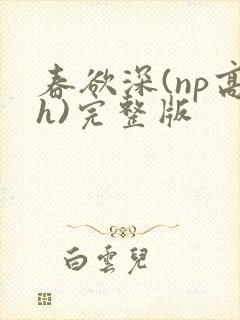 春欲深(np高
h)完整版
白雲兒